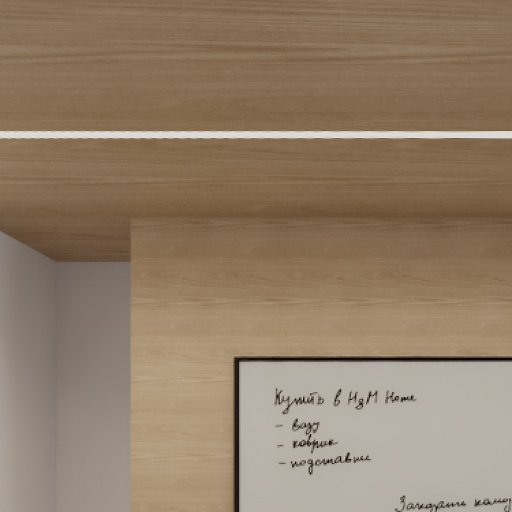 Купить в H&M Home
- вазу
- коврик
- подставки
Заказать комод